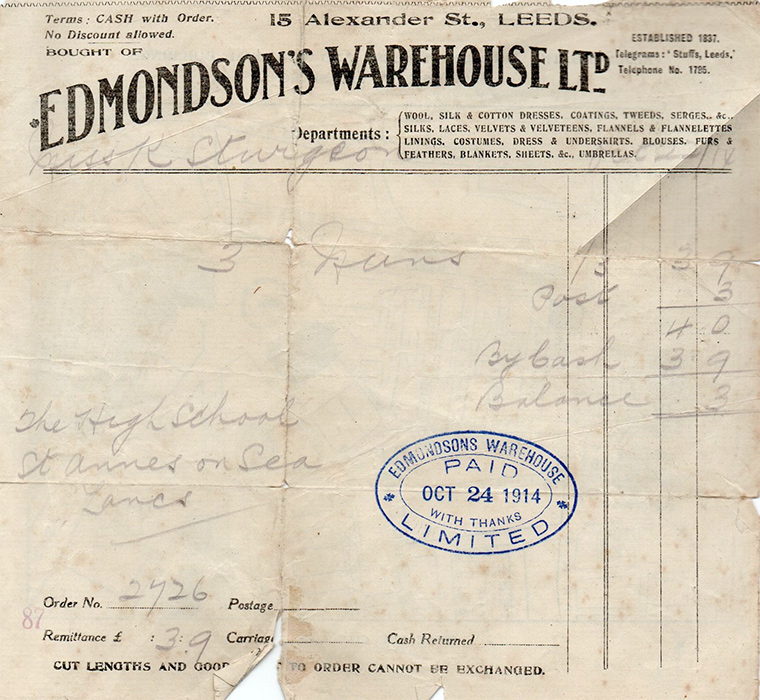 Terms : CASH with Order.
No Discount allowed.
15 Alexander St., LEEDS.
ESTABLISHED 1837.
Telegrams : 'Stuffs, Leeds,'
Telephone No. 1785.
BOUGHT OF
EDMONDSON'S WAREHOUSE LTD
Departments :
WOOL, SILK & COTTON DRESSES. COATINGS, TWEEDS, SERGES., &c.,
SILKS, LACES, VELVETS & VELVETEENS, FLANNELS & FLANNELETTES
LININGS. COSTUMES, DRESS & UNDERSKIRTS. BLOUSES. FURS &
FEATHERS, BLANKETS, SHEETS, &c., UMBRELLAS.
Miss K Sturgeon
3 1/3 3 9
Post 3
4 0
By Cash 3 9
Balance 3
The High School
St Annes on Sea
Lancs
EDMONDSONS WAREHOUSE
PAID
OCT 24 1914
WITH THANKS
LIMITED
Order No. 2726 Postage
87
Remittance £ : 3.9 Carriag Cash Returned
CUT LENGTHS AND GOO TO ORDER CANNOT BE EXCHANGED.